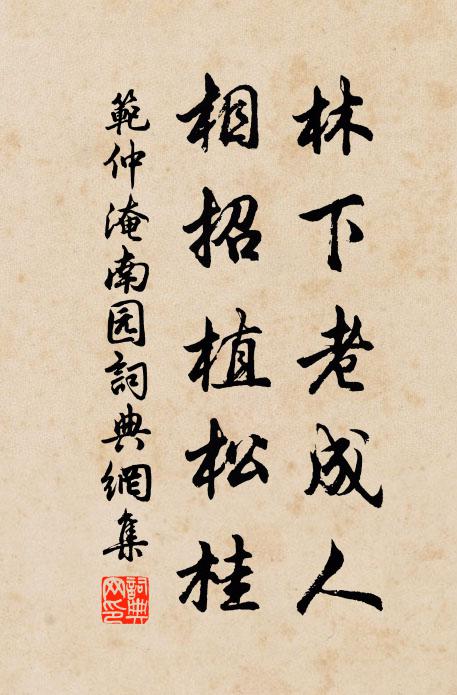 林下老成人
相招植松桂
範仲淹南园詞典網集
詞典
网印